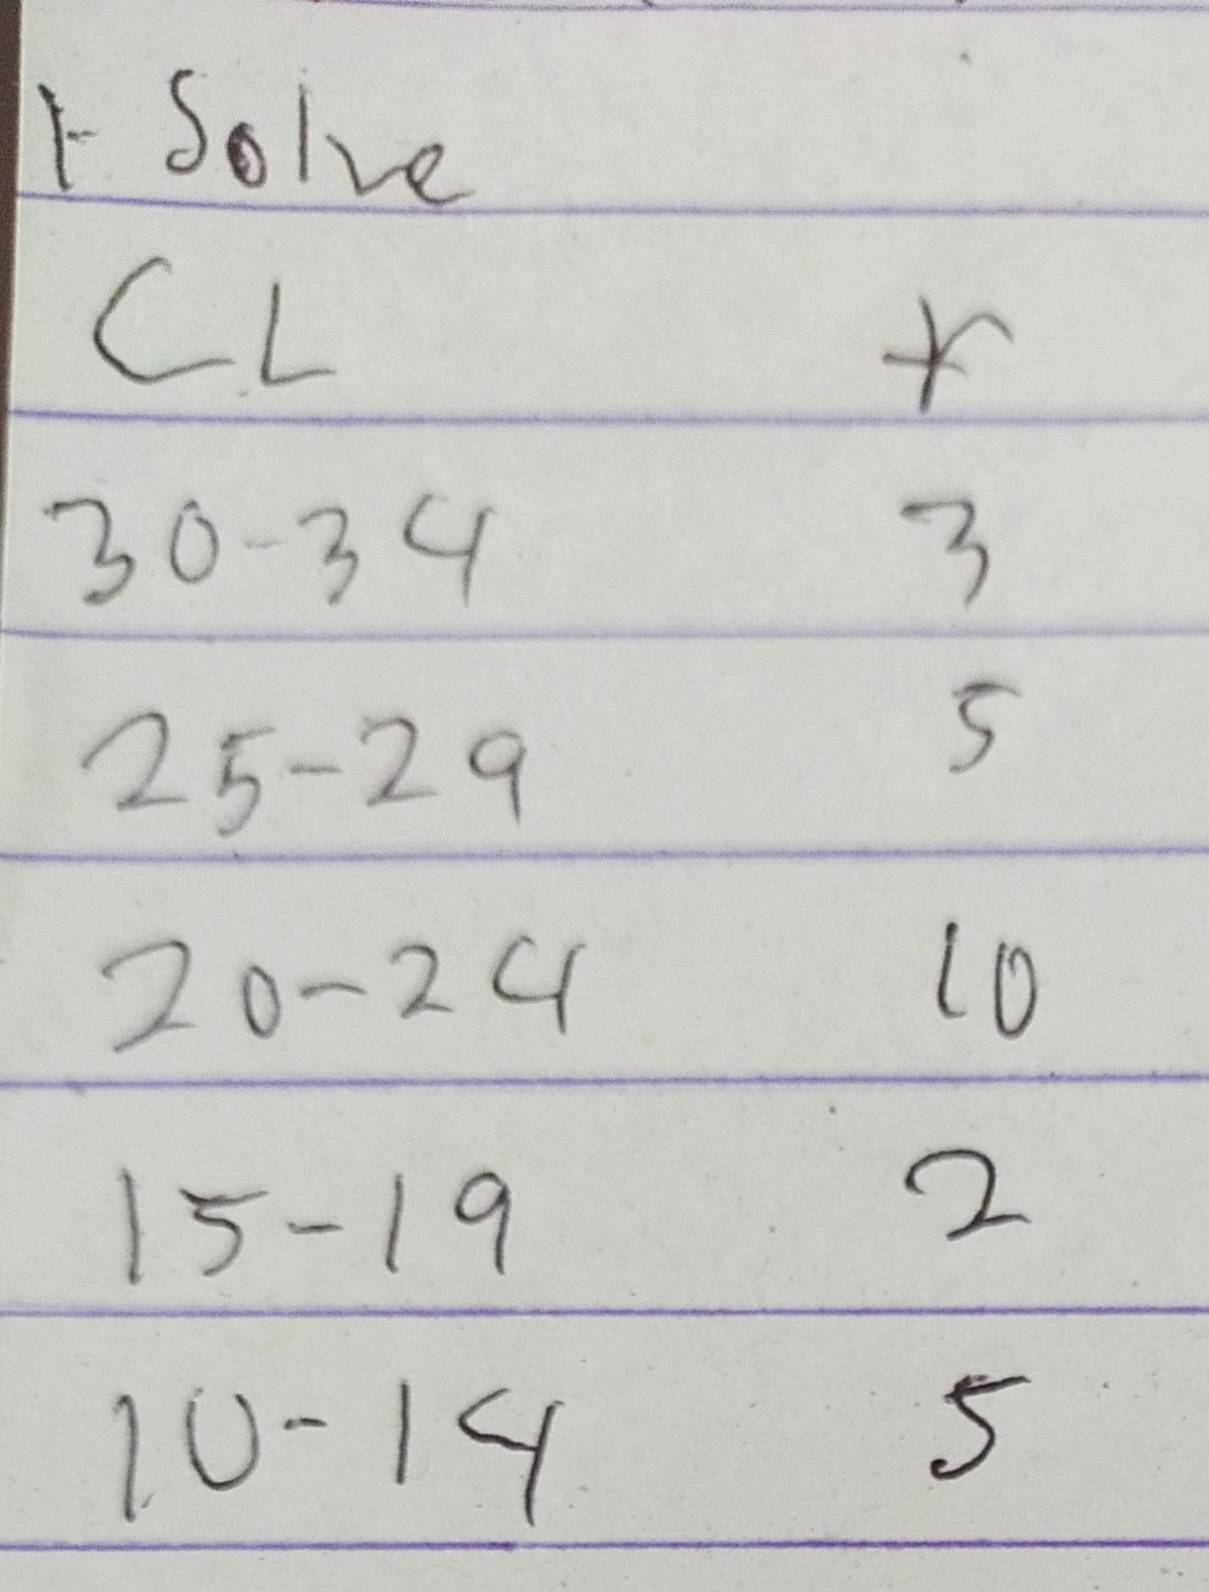 1- Solve
CL f
30-34 3
25-29 5
20-24 10
15-19 2
10-14 5